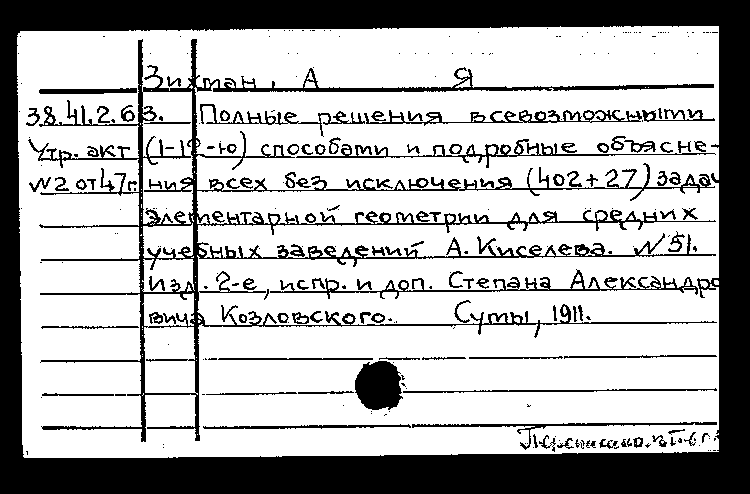 Зихман, А Я
38.41.2.63. Полные решения всевозможными
Утр. акт (1-12-ю) способами и подробные объясне-
№2 от 47г. ния всех без исключения (402+27) задач
элементарной геометрии для средних
учебных заведений А. Киселева. №51.
Изд. 2-е, испр. и доп. Степана Александро
вича Козловского. Суты, 1911.